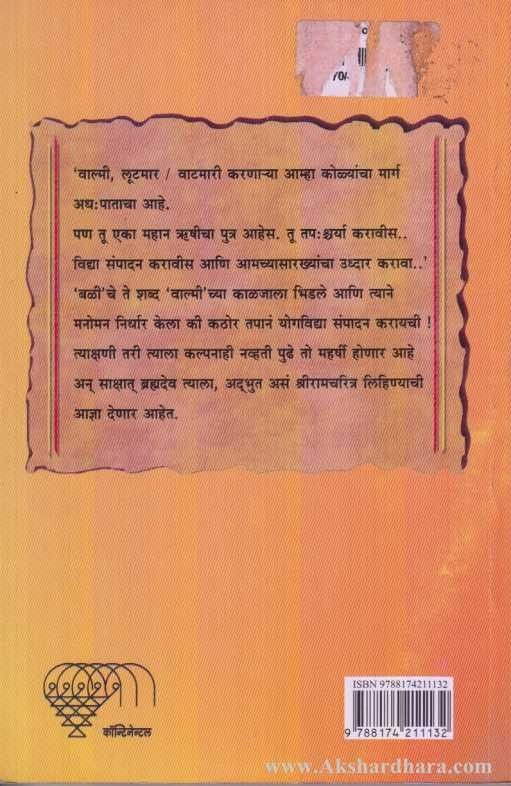 70/-
'वाल्मी, लूटमार / वाटमारी करणाऱ्या आम्हा कोळ्यांचा मार्ग
अध:पाताचा आहे.
पण तू एका महान ऋषीचा पुत्र आहेस. तू तप:श्चर्या करावीस..
विद्या संपादन करावीस आणि आमच्यासारख्यांचा उध्दार करावा..'
'बळी'चे ते शब्द 'वाल्मी'च्या काळजाला भिडले आणि त्याने
मनोमन निर्धार केला की कठोर तपानं योगविद्या संपादन करायची !
त्याक्षणी तरी त्याला कल्पनाही नव्हती पुढे तो महर्षी होणार आहे
अन् साक्षात् ब्रह्मदेव त्याला, अद्भुत असं श्रीरामचरित्र लिहिण्याची
आज्ञा देणार आहेत.
कॉन्टिनेन्टल
ISBN 9788174211132
9 788174 211132
www.Akshardhara.com